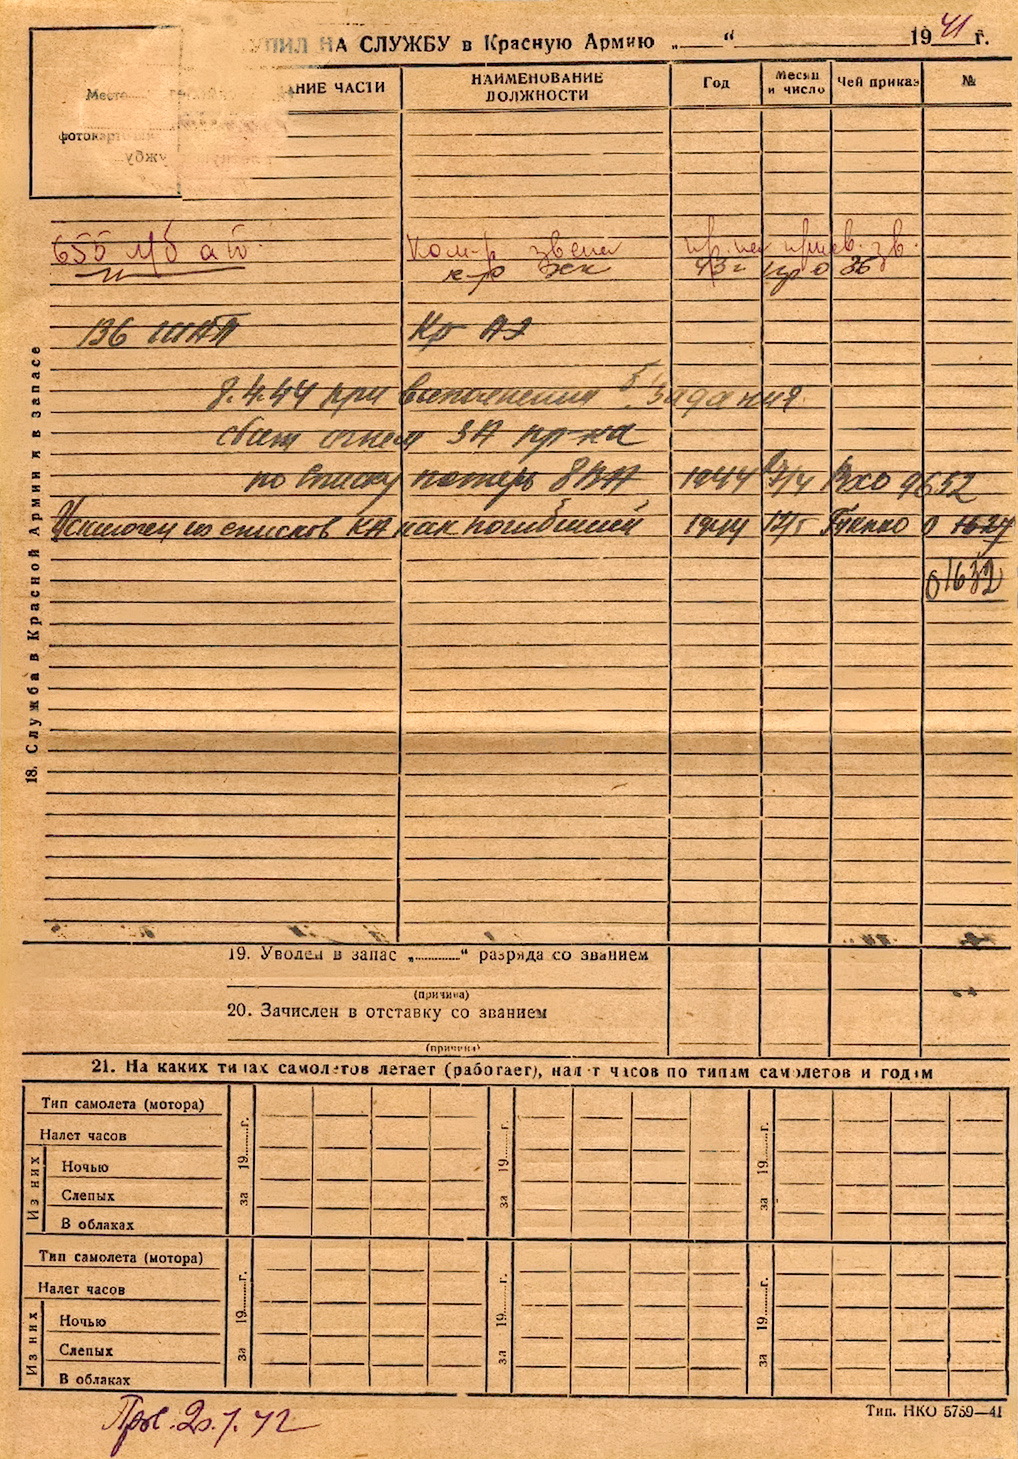 НА СЛУЖБУ в Красную Армию „ “ 1941 г.
Место
фотокарточки
АНИЕ ЧАСТИ
НАИМЕНОВАНИЕ ДОЛЖНОСТИ
Год
Месяц и число
Чей приказ
№
18. Служба в Красной Армии и в запасе
655 Ком-р звена
43 г 36
136 ШАП Кр АЭ
8.4.44 при выполнении б/задания
сбит огнем ЗА пр-ка
по списку потерь 8ВА 1944 7/IV Вхо 9652
Исключен из списков КА как погибший 1944 0 1627
01632
19. Уволен в запас „..........“ разряда со званием
(причина)
20. Зачислен в отставку со званием
(причина)
21. На каких типах самолетов летает (работает), налет часов по типам самолетов и годам
Тип самолета (мотора)
Налет часов
Из них
Ночью
Слепых
В облаках
за 19......г.
за 19......г.
за 19......г.
Тип самолета (мотора)
Налет часов
Из них
Ночью
Слепых
В облаках
за 19......г.
за 19......г.
за 19......г.
Тип. НКО 5759—41